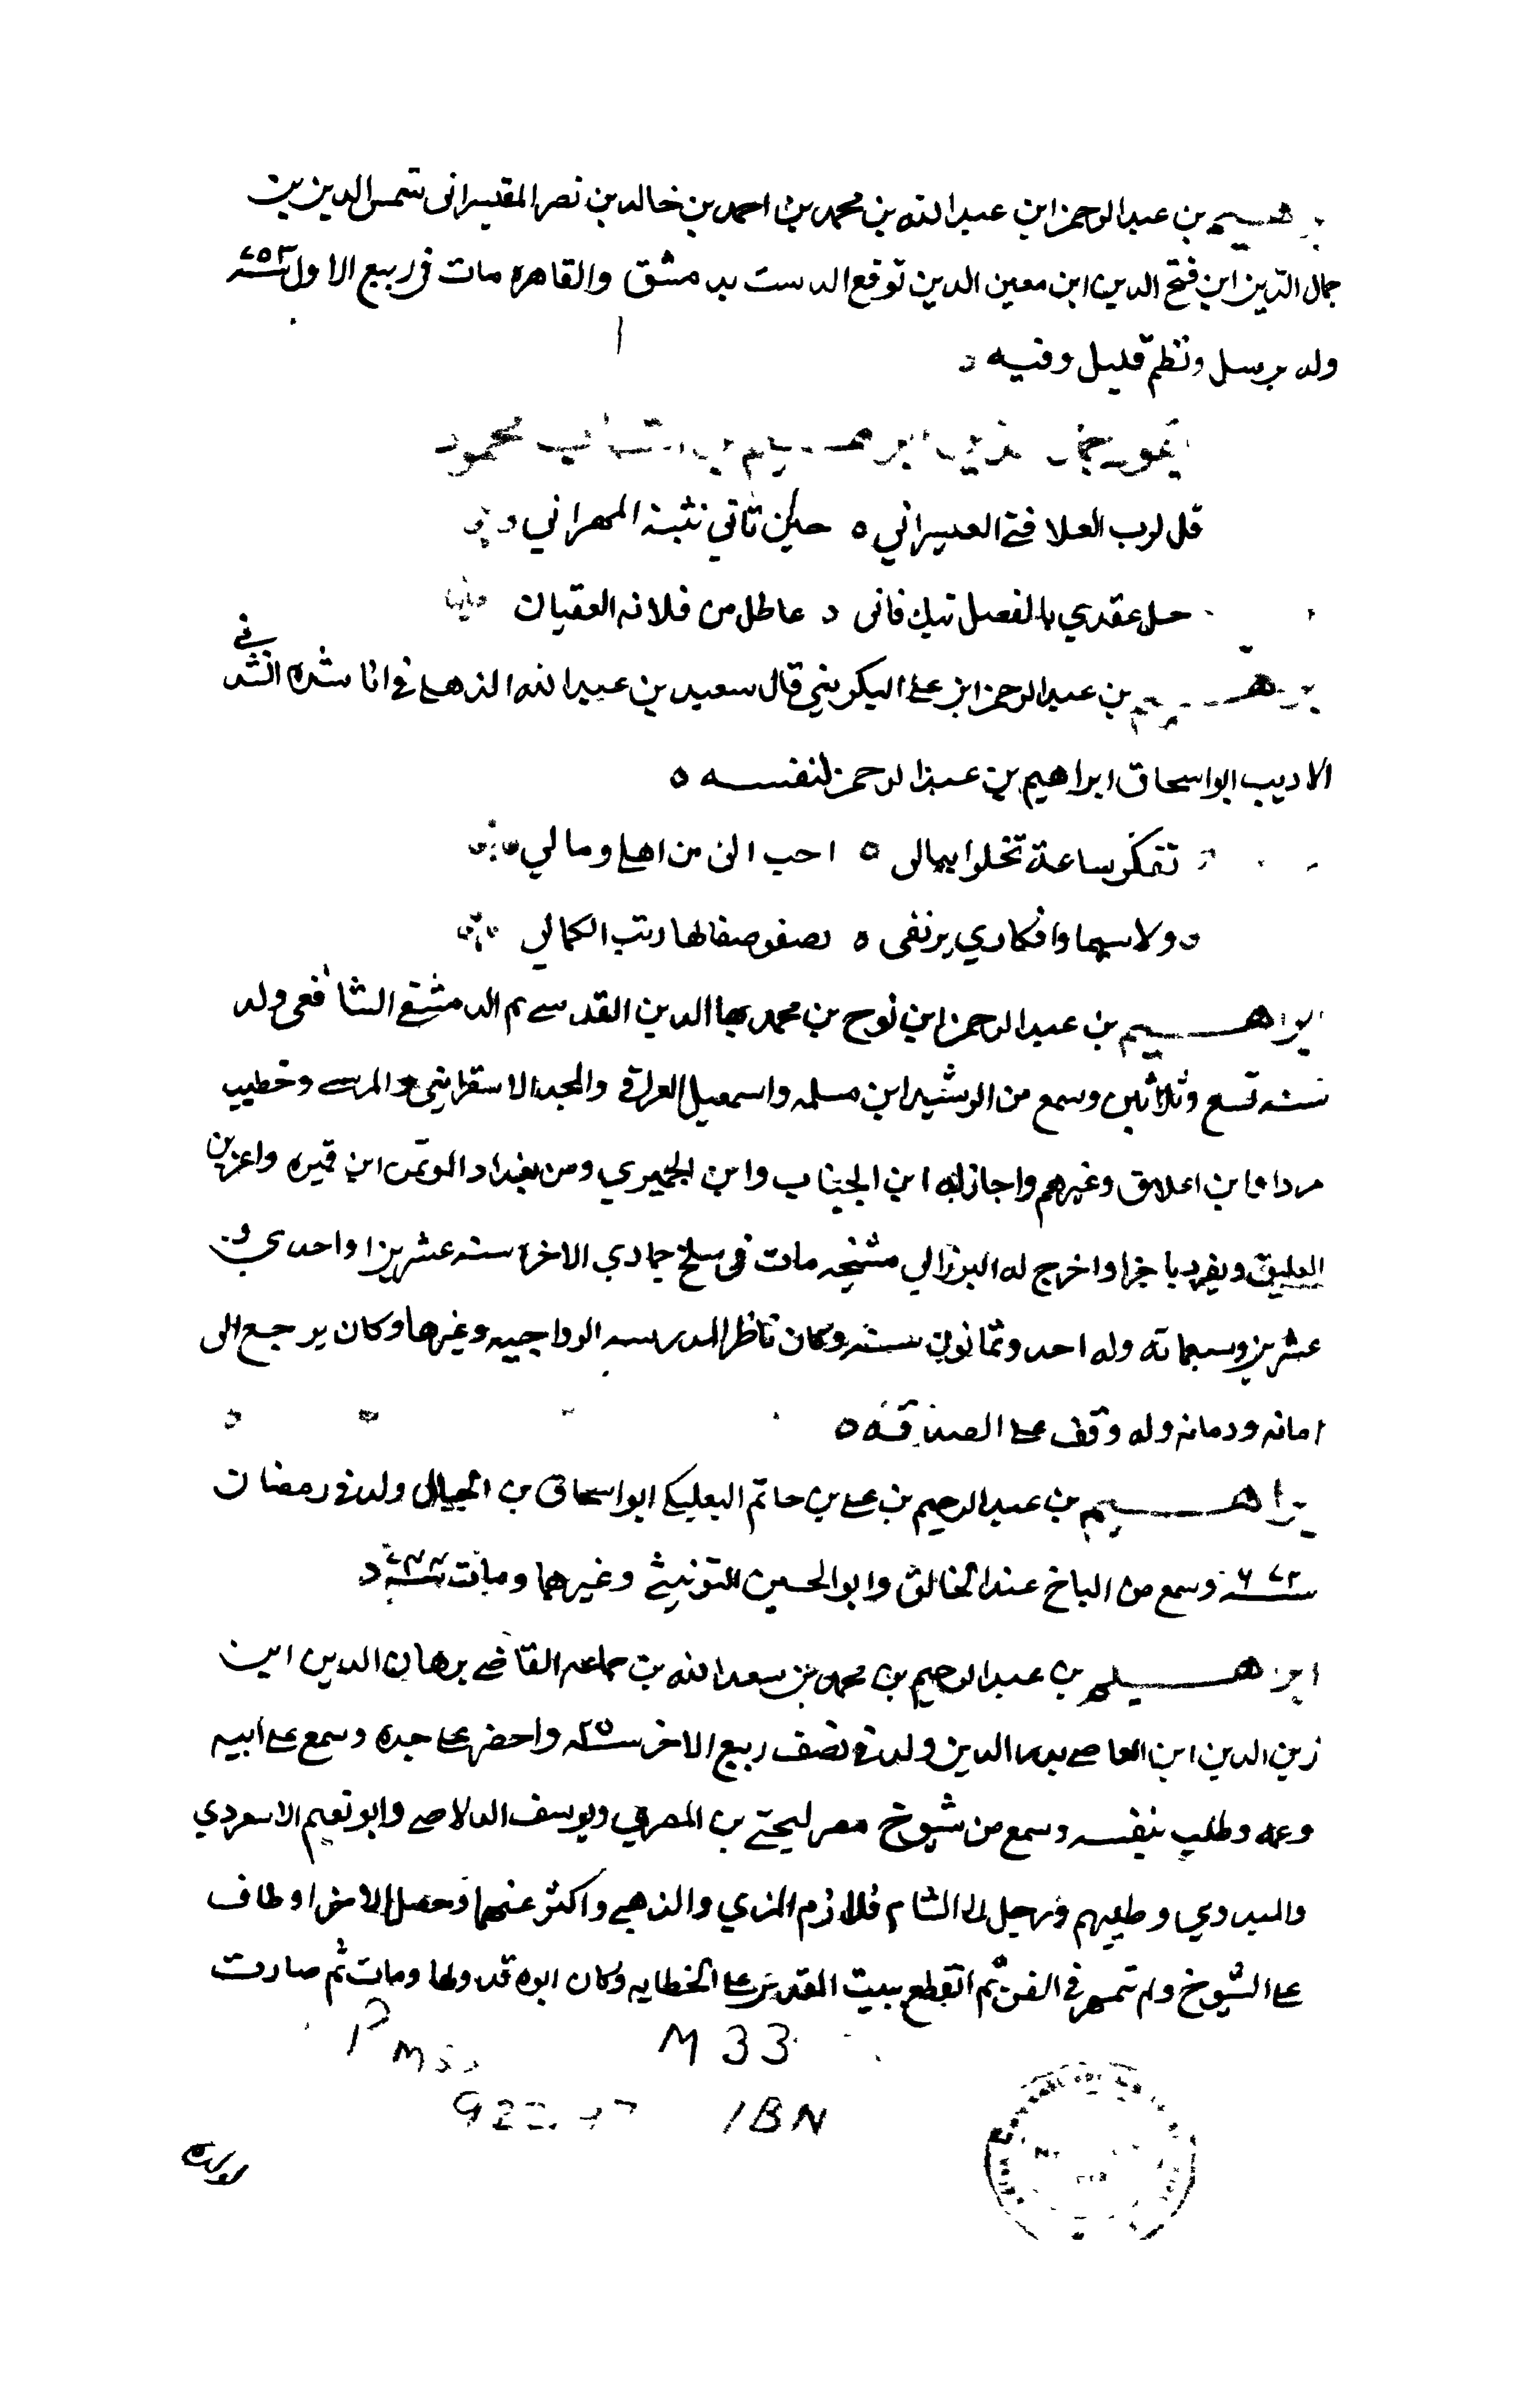 برهيم بن عبد الرحمن ابن عبد الله بن محمد بن احمد بن خالد بن نصر المقيسرانى شمس الدين بن
جمال الدين ابن فتح الدين ابن معين الدين توقع الدست بدمشق والقاهره مات فى ربيع الاول سنة ٧٥٣
وله برسل ونظم قليل وفيه
جمال برهيم بن الشهاب محمود
قل لرب العلا فتى العيسرانى ٥ حين تاتي نثبة المهرانى
حل عقدي بالفصل تيك فانى د عاطل من فلانه العقيان
برهيم بن عبد الرحمن ابن على اليكريني قال سعيد بن عبد الله الذهلى فى اناشده انشدني
الاديب ابو اسحاق ابراهيم بن عبد الرحمن لنفسه ٥
تفكر ساعة تخلوا ببالى ٥ احب الى من اهلى ومالي
ولا سيما وافكاري برنقى ٥ بصفو صفا لها رتب الكمالي
ابراهيم بن عبد الرحمن ابن نوح بن محمد بها الدين القدسى ثم الدمشقى الشافعى ولد
سنه تسع وثلاثين وسمع من الرشيد ابن مسلمه واسمعيل العراقى والمجد الاسفراينى والمرسى وخطيب
مردا وابن اعلاق وغيرهم واجازله ابن الجناب وابن الجميري ومن بغداد الموتمن ابن قميره واعز بن
العليق ويفرد باجزا واخرج له البرزالي مشيخه مات فى سلخ جمادي الاخرة سنه عشرين او احدي و
عشرين وسبعمائة وله احد وثمانون سنه وكان ناظر المدرسه الرواحيه وغيرها وكان يرجع الى
امانه وديانه وله وقف على الصدقه ٥
براهيم بن عبد الرحيم بن على بن حاتم البعليكى ابو اسحاق بن الجبال ولد فى رمضان
سنه ٦٧٣ وسمع من الباخ عبد الخالق وابو الحسين التونينى وغيرهما ومات سنة ٧٣٣ د
ابراهيم بن عبد الرحيم بن محمد بن سعد الله بن جماعه القاضى برهان الدين ابن
زين الدين ابن العاصى بدر الدين ولد فى نصف ربيع الاخر سنة ٢٥ واحضر على جده وسمع على ابيه
وعمه وطلب بنفسه وسمع من شيوخ مصر ليحيى بن المصري ويوسف الدلاصى وابو نعيم الاسعردي
والميدومي وطبيهم ورحل الى الشام فلازم المزي والذهبى واكثر عنهما وحصل الاجزا وطاف
على الشيوخ ولم تتمهر فى الفن ثم انقطع ببيت المقدس على الخطابه وكان ابوه قد ولها ومات ثم صارت
P mss M 33
922.97 IBN
لولده